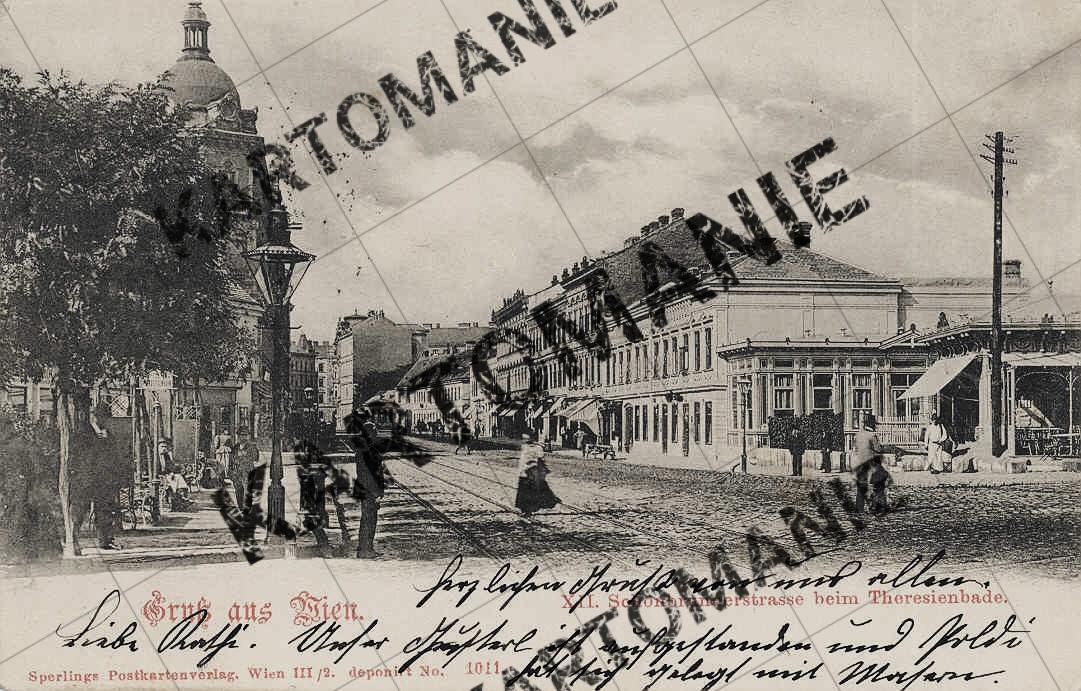 KARTOMANIE
KARTOMANIE
KARTOMANIE
herzlichen Gruß von uns allen.
Gruß aus Wien.
XII. Schönbrunnerstrasse beim Theresienbade.
Liebe Kathi. Unser ist aufgestanden und Poldi
hat sich gelegt mit Masern.
Sperlings Postkartenverlag. Wien III/2. deponirt No. 1011.